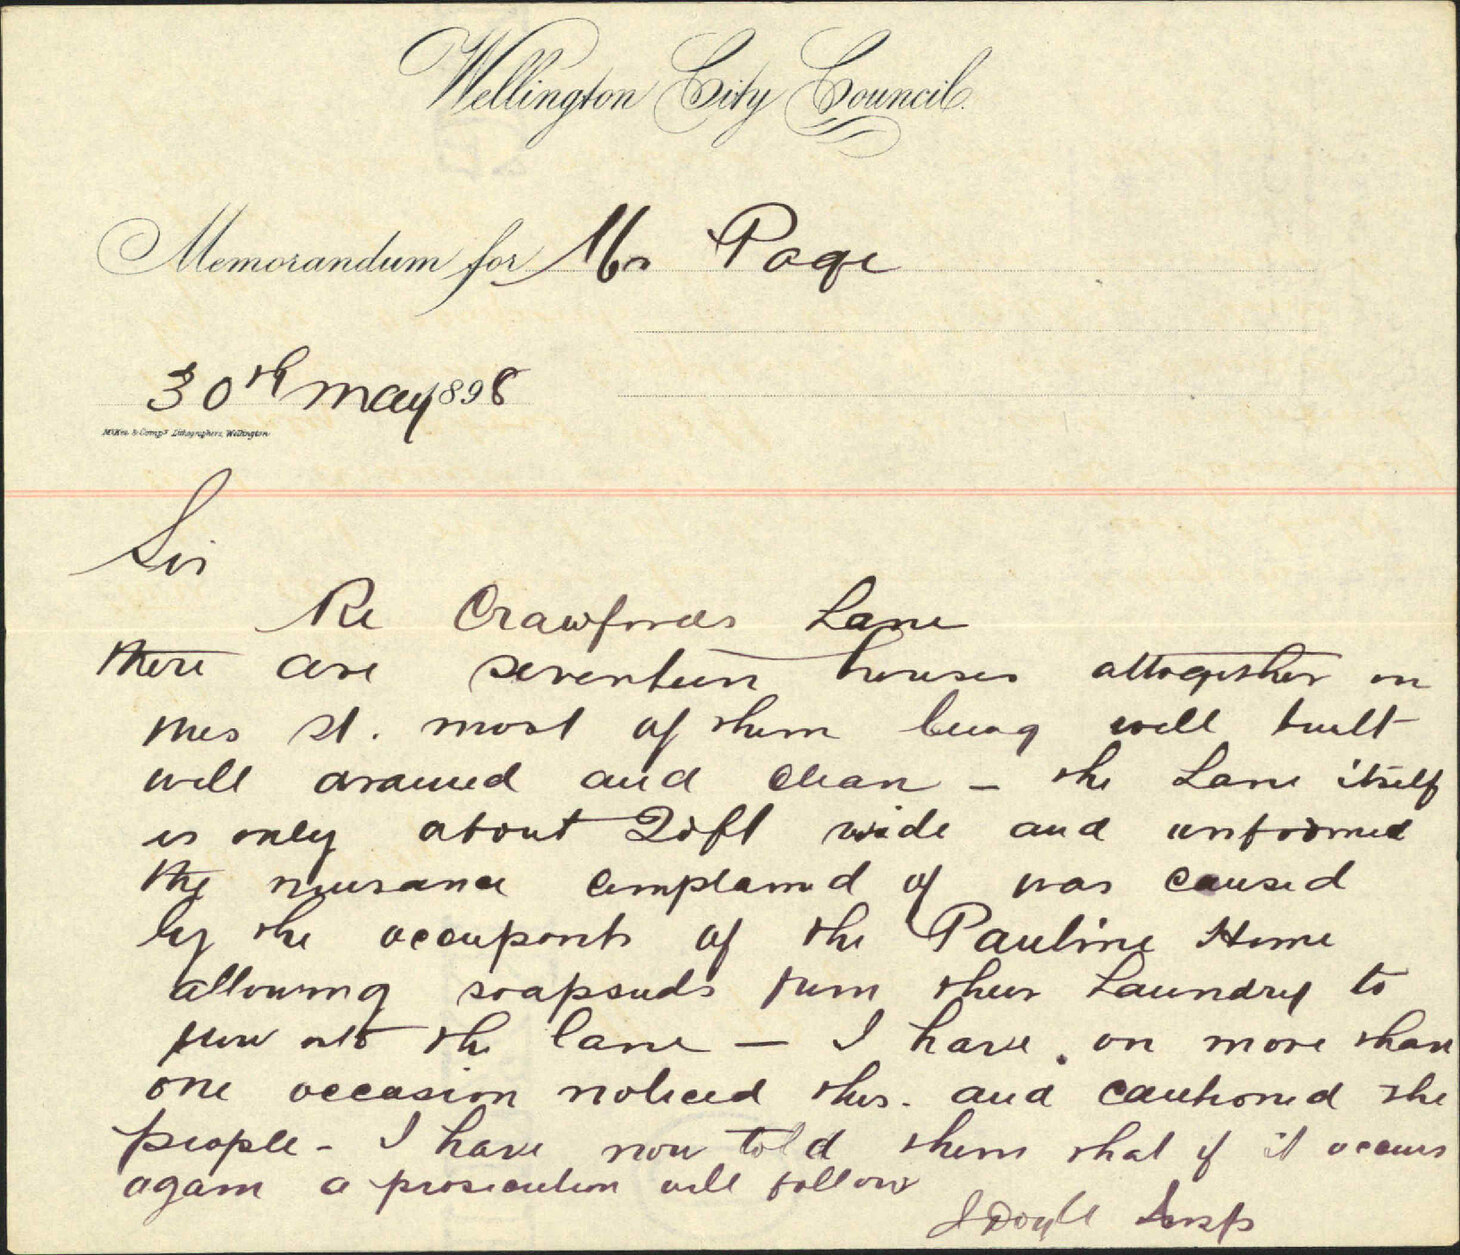 Wellington City Council.
Memorandum for Mr Page
30th May 1898
McKee & Comp'y Lithographers, Wellington
Sir
Re Crawfords Lane
there are seventeen houses altogether in
this St. most of them being well built
well drained and clean - the Lane itself
is only about 20ft wide and unformed
the nuisance complained of was caused
by the occupants of the Pauline Home
allowing soapsuds from their Laundry to
flow into the lane - I have on more than
one occasion noticed this. and cautioned the
people - I have now told them that if it occurs
again a prosecution will follow
J Doyle Insp